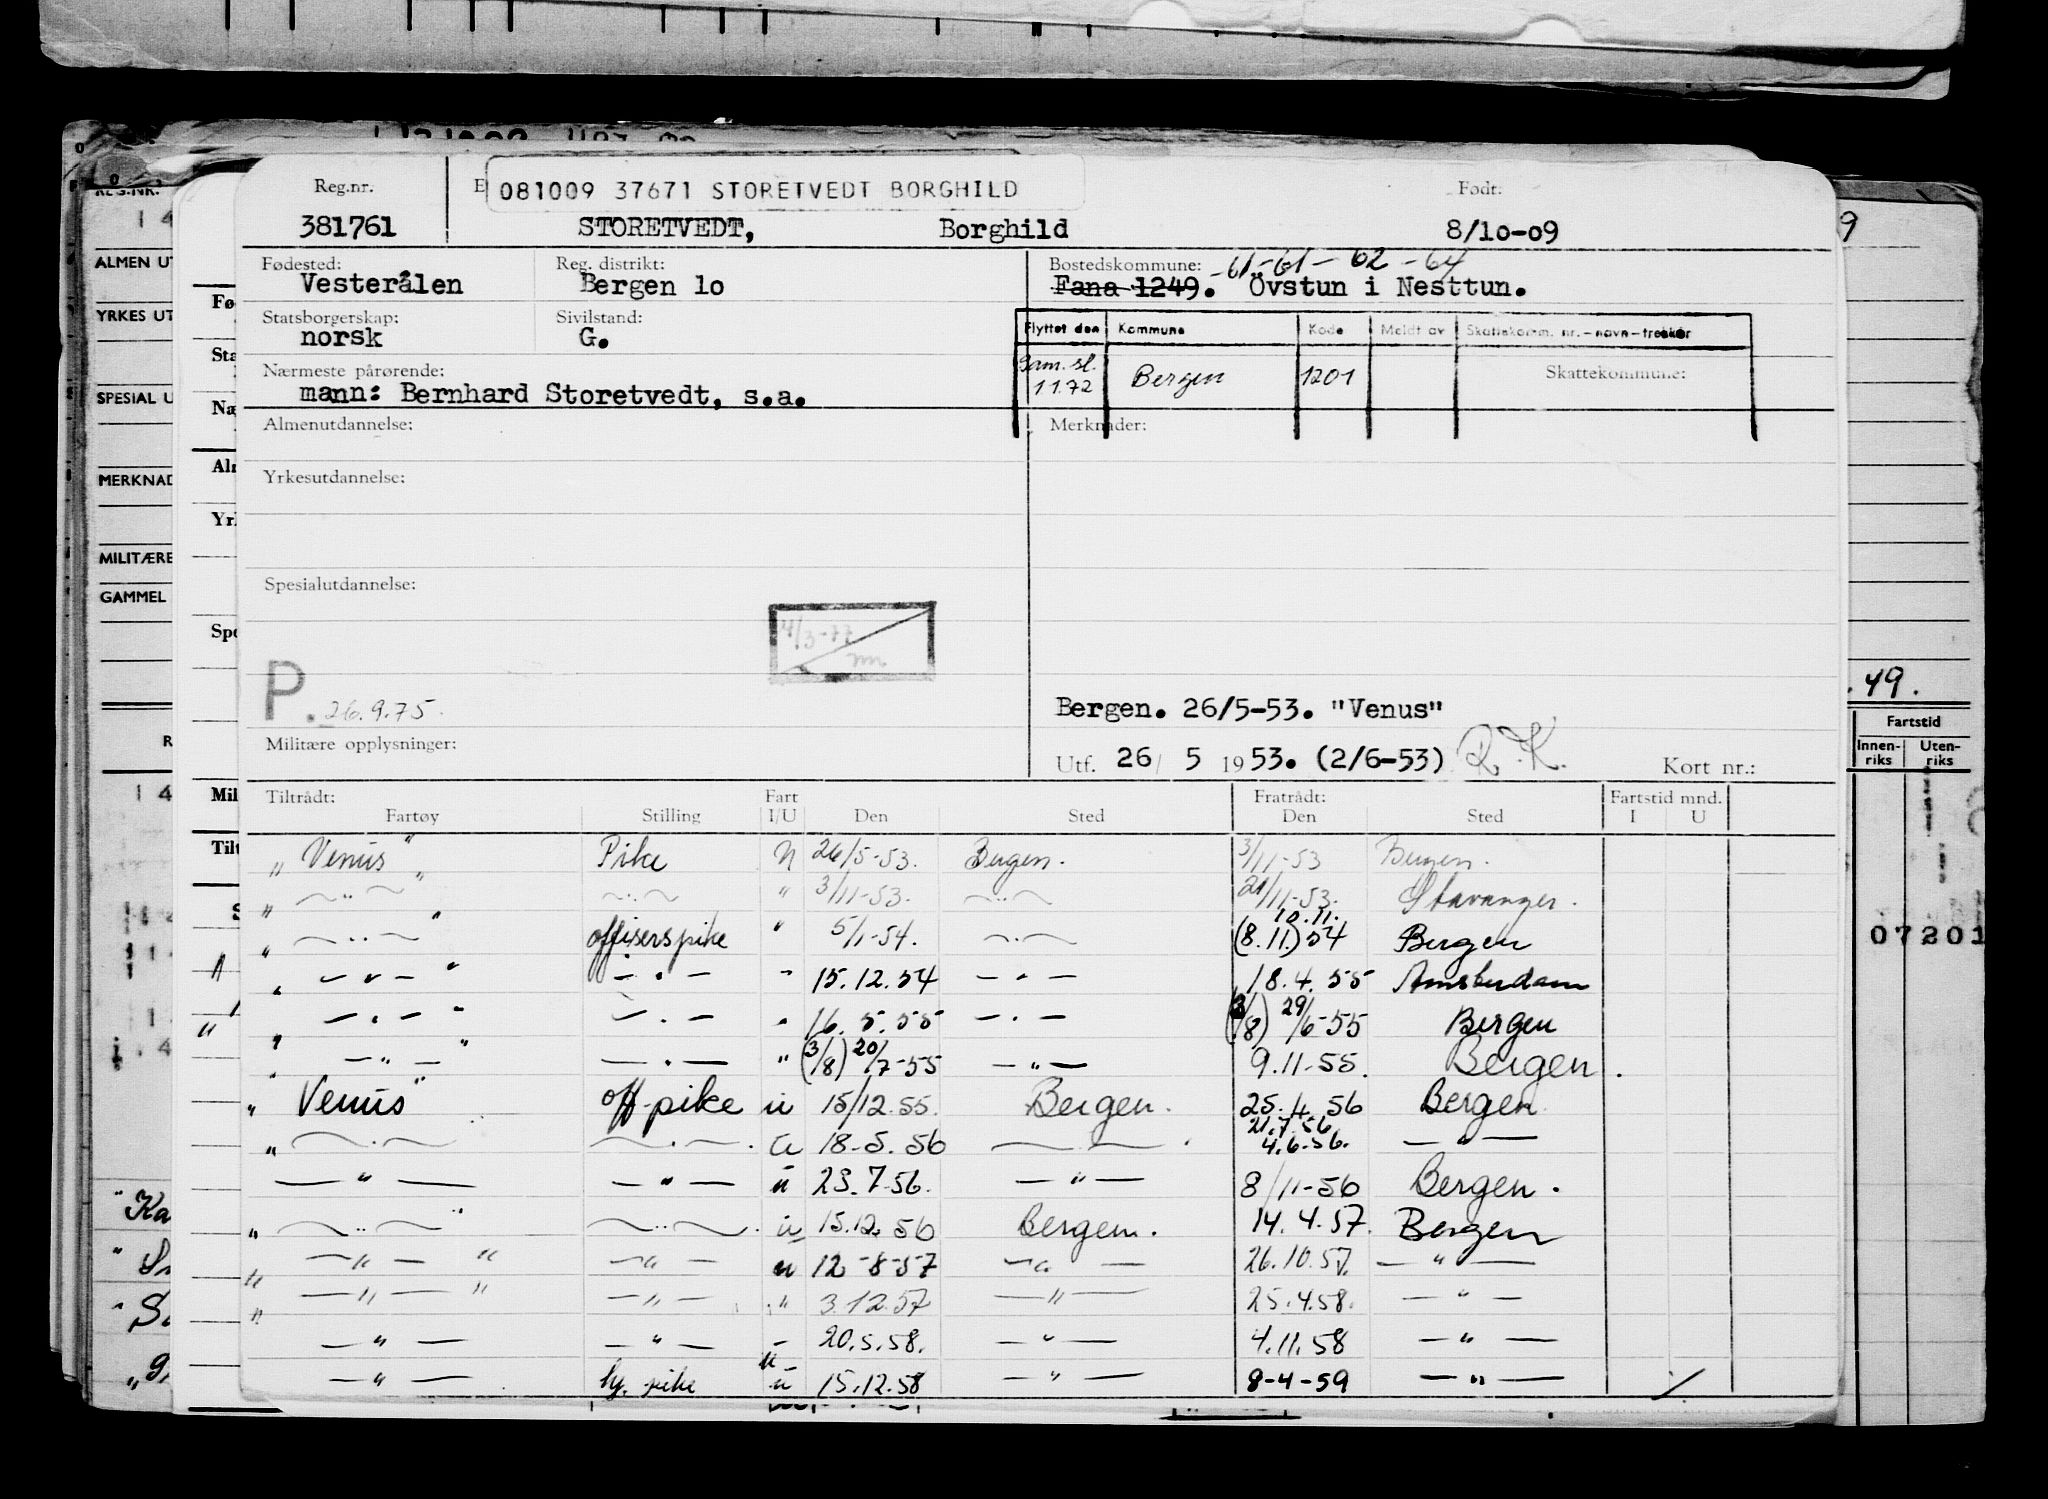 Reg.nr.
081009 37671 STORETVEDT BORGHILD
Født:
381761 STORETVEDT, Borghild 8/10-09
Fødested: Reg. distrikt: Bostedskommune: -61-61-62-64
Vesterålen Bergen 10 Fana 1249. Övstun i Nesttun.
Statsborgerskap: Sivilstand:
norsk G.
Flyttet den Kommune Kode Meldt av Skattekomm. nr.-navn-trekker
1.1.72 Bergen 1201 Skattekommune:
Nærmeste pårørende:
mann: Bernhard Storetvedt, s.a.
Almenutdannelse: Merknader:
Yrkesutdannelse:
Spesialutdannelse:
4/3-77
P. 26.9.75.
Bergen. 26/5-53. "Venus"
Militære opplysninger: Utf. 26/ 5 1953. (2/6-53) R.K. Kort nr.:
Tiltrådt: Fart Fratrådt: Fartstid mnd.
Fartøy Stilling I/U Den Sted Den Sted I U
"Venus" Pike N 26/5-53. Bergen. 3/11-53 Bergen.
" — " — " — " — " 3/11-53. — " — 21/11-53. Stavanger.
" — " — " offiserspike " 5/1-54. — " — (8.11.) 10.11. 54 Bergen
" — " — " — " — " 15.12.54 — " — 18.4.55 Amsterdam
" — " — " — " — " 16.5.55 — " — (3/8) 29/6-55 Bergen
" — " — " — " — " (3/8) 20/7-55 — " — 9.11-55. Bergen.
"Venus" off-pike u 15/12.55. Bergen. 25.4.56 Bergen
" — " — — " — . u 18-5.56 — " — . 21.7.56 4.6.56. — " —
— " — — " — u 23.7.56. — " — 8/11-56 Bergen.
" — " — " — " — . u 15.12.56 Bergen. 14.4.57. Bergen
" — " — " — " — u 12-8-57 — " — 26.10.57. — " —
" — " — " — " — " 3.12.57 — " — 25.4.58. — " —
— " — — " — 20.5.58. — " — 4.11.58 — " —
— " — pike u 15.12.58 — " — 8-4-59 — " —
REG.NR.
ALMEN UT
YRKES UT
SPECIAL U
MERKNAD
MILITÆRE
GAMMEL
.49.
Fartstid
Innen-riks Uten-riks
07201